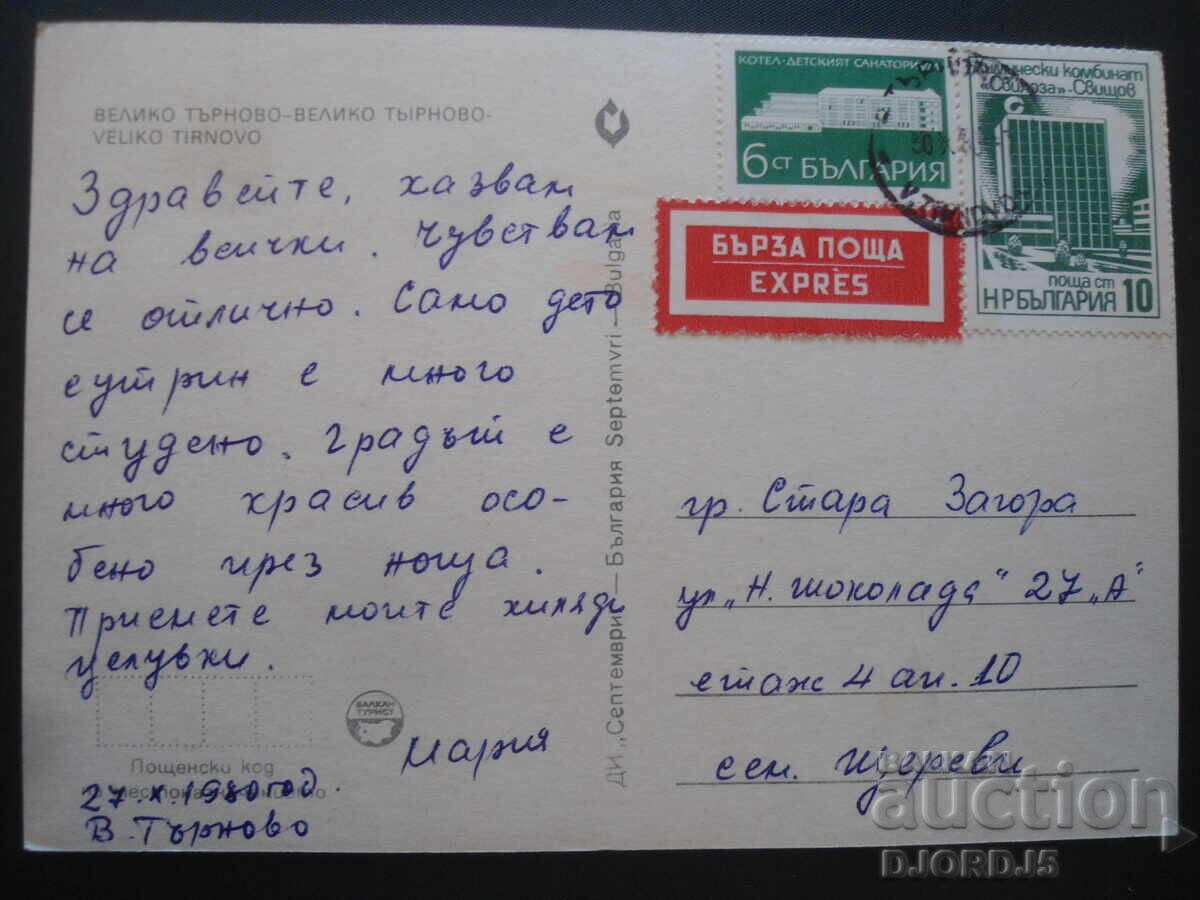 ВЕЛИКО ТЪРНОВО–ВЕЛИКО ТЫРНОВО–
VELIKO TIRNOVO
Здравейте, казвам
на всички. Чувствам
се отлично. Само дето
сутрин е много
студено. Градът е
много красив осо-
бено през ноща.
Приемете моите хиляди
целувки.
Мария
БАЛКАН
ТУРИСТ
Пощенски код
27.X.1980 год.
В. Търново
ДИ „Септември"–България Septemvri–Bulgaria
КОТЕЛ·ДЕТСКИЯТ САНАТОРИУМ
6 СТ БЪЛГАРИЯ
комбинат
„Свилоза"-Свищов
поща ст
НРБЪЛГАРИЯ 10
V. TIRNOVO
БЪРЗА ПОЩА
EXPRÈS
гр. Стара Загора
ул „Н. Шоколада" 27 „А"
етаж 4 ап. 10
сем. Щереви
auction
DJORDJ5